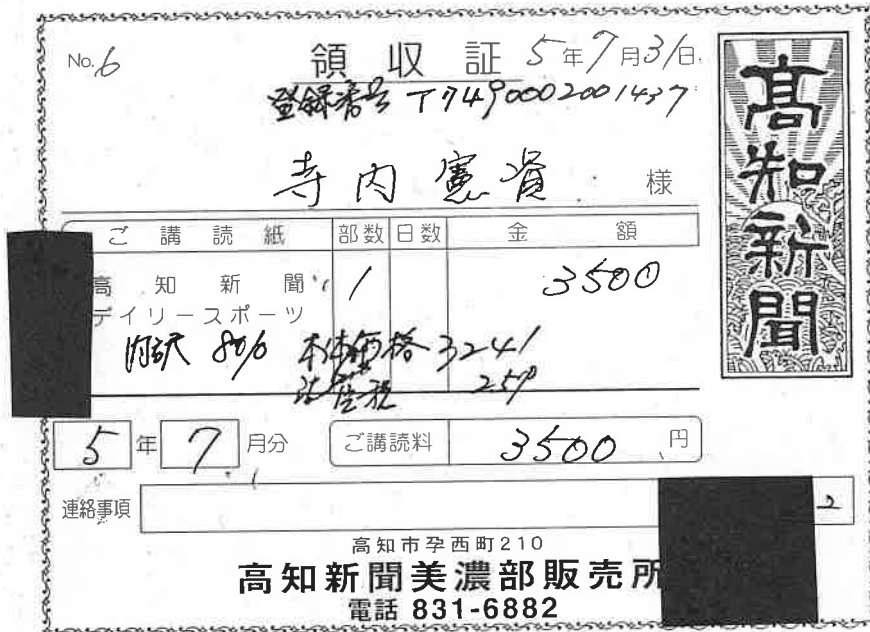 No. 6
領収証 5年7月31日
登録番号 T7490002001437
寺内憲資 様
ご購読紙 部数 日数 金額
高知新聞 1 3500
デイリースポーツ
内訳 8% 本体価格 3241
消費税 259
5年 7月分 ご購読料 3500円
連絡事項
2
高知市孕西町210
高知新聞美濃部販売所
電話 831-6882
高知新聞